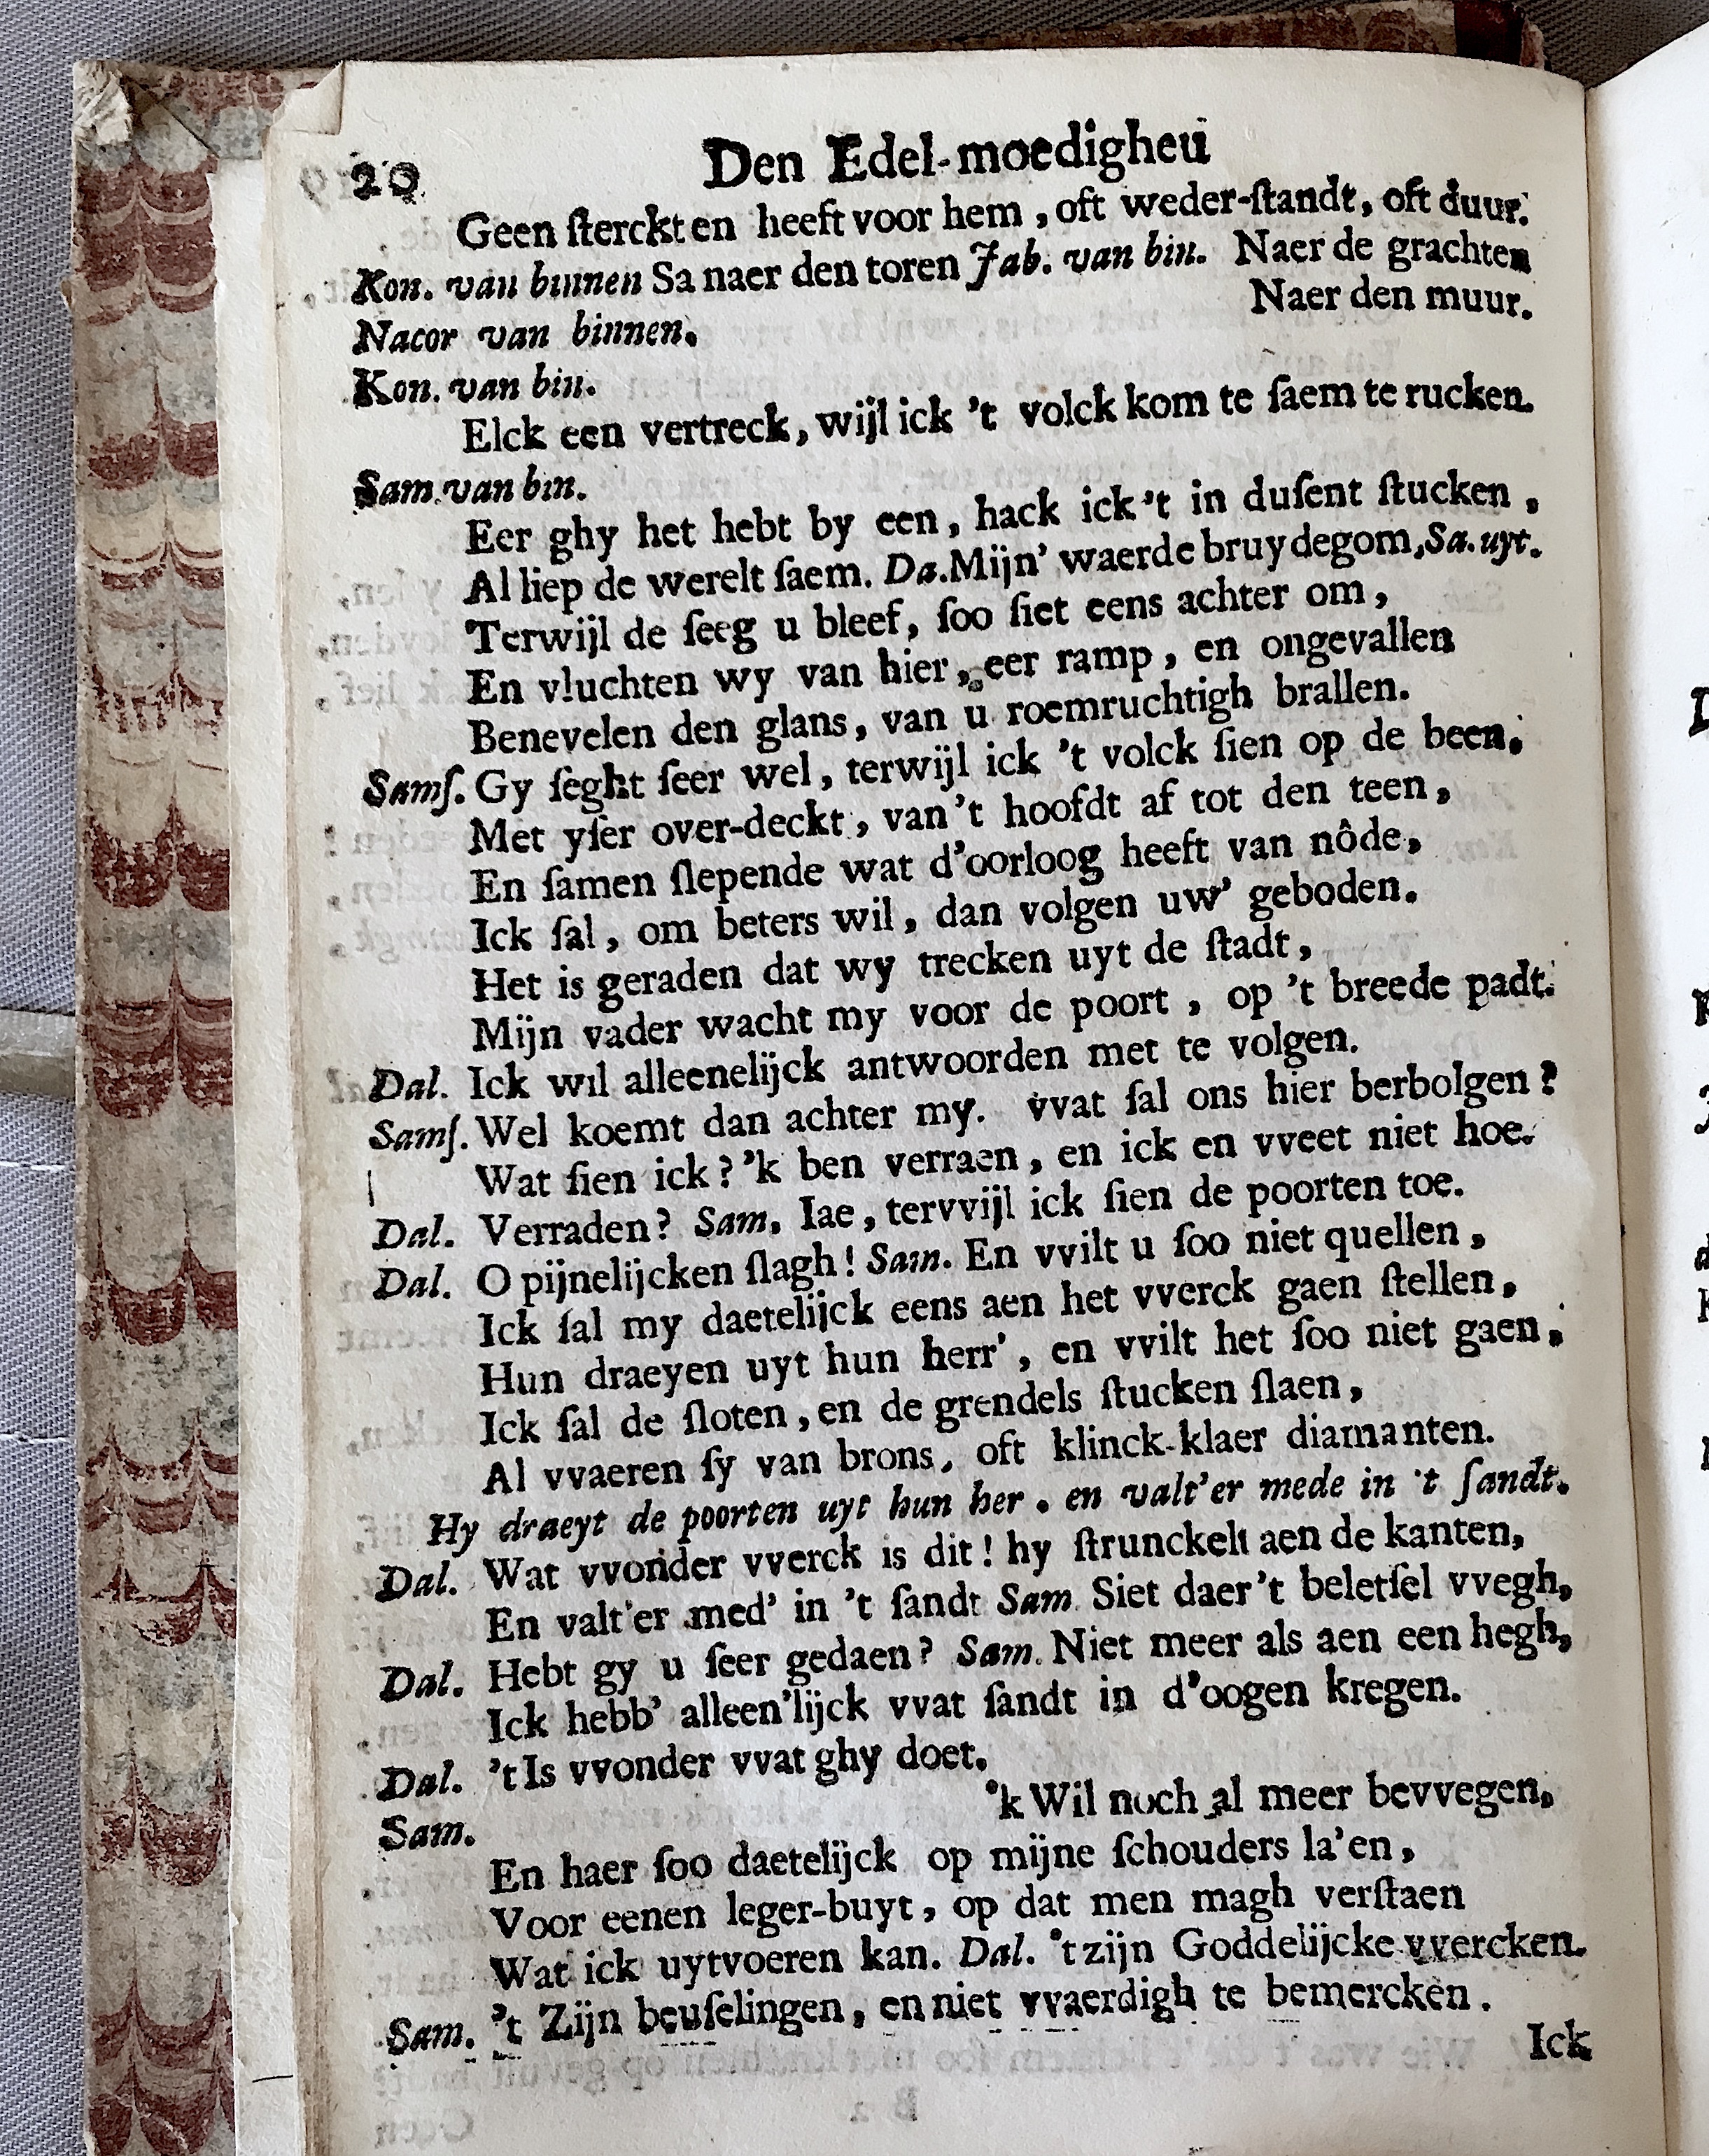 20 Den Edel-moedigheu
Geen ſterckten heeft voor hem, oft weder-ſtandt, oft duur.
Kon. van binnen Sa naer den toren Jab. van bin. Naer de grachten
Naer den muur.
Nacor van binnen.
Kon. van bin.
Elck een vertreck, wijl ick 't volck kom te ſaem te rucken.
Sam. van bin.
Eer ghy het hebt by een, hack ick 't in duſent ſtucken,
Al liep de werelt ſaem. Da. Mijn' waerde bruydegom, Sa. uyt.
Terwijl de ſeeg u bleef, ſoo ſiet eens achter om,
En vluchten wy van hier, eer ramp, en ongevallen
Benevelen den glans, van u roemruchtigh brallen.
Samſ. Gy ſeght ſeer wel, terwijl ick 't volck ſien op de been,
Met yſer over-deckt, van 't hoofdt af tot den teen,
En ſamen ſlepende wat d'oorloog heeft van nôde,
Ick ſal, om beters wil, dan volgen uw' geboden.
Het is geraden dat wy trecken uyt de ſtadt,
Mijn vader wacht my voor de poort, op 't breede padt.
Dal. Ick wil alleenelijck antwoorden met te volgen.
Samſ. Wel koemt dan achter my. vvat ſal ons hier berbolgen?
Wat ſien ick? 'k ben verraen, en ick en vveet niet hoe.
Dal. Verraden? Sam. Iae, tervvijl ick ſien de poorten toe.
Dal. O pijnelijcken ſlagh! Sam. En vvilt u ſoo niet quellen,
Ick ſal my daetelijck eens aen het vverck gaen ſtellen,
Hun draeyen uyt hun herr', en vvilt het ſoo niet gaen,
Ick ſal de ſloten, en de grendels ſtucken ſlaen,
Al vvaeren ſy van brons, oft klinck-klaer diamanten.
Hy draeyt de poorten uyt hun her. en valt'er mede in 't ſandt.
Dal. Wat vvonder vverck is dit! hy ſtrunckelt aen de kanten,
En valt'er med' in 't ſandt Sam. Siet daer 't beletſel vvegh,
Dal. Hebt gy u ſeer gedaen? Sam. Niet meer als aen een hegh,
Ick hebb' alleen'lijck vvat ſandt in d'oogen kregen.
Dal. 't Is vvonder vvat ghy doet.
Sam. 'k Wil noch al meer bevvegen,
En haer ſoo daetelijck op mijne ſchouders la'en,
Voor eenen leger-buyt, op dat men magh verſtaen
Wat ick uytvoeren kan. Dal. 't zijn Goddelijcke vvercken.
Sam. 't Zijn beuſelingen, en niet vvaerdigh te bemercken.
Ick